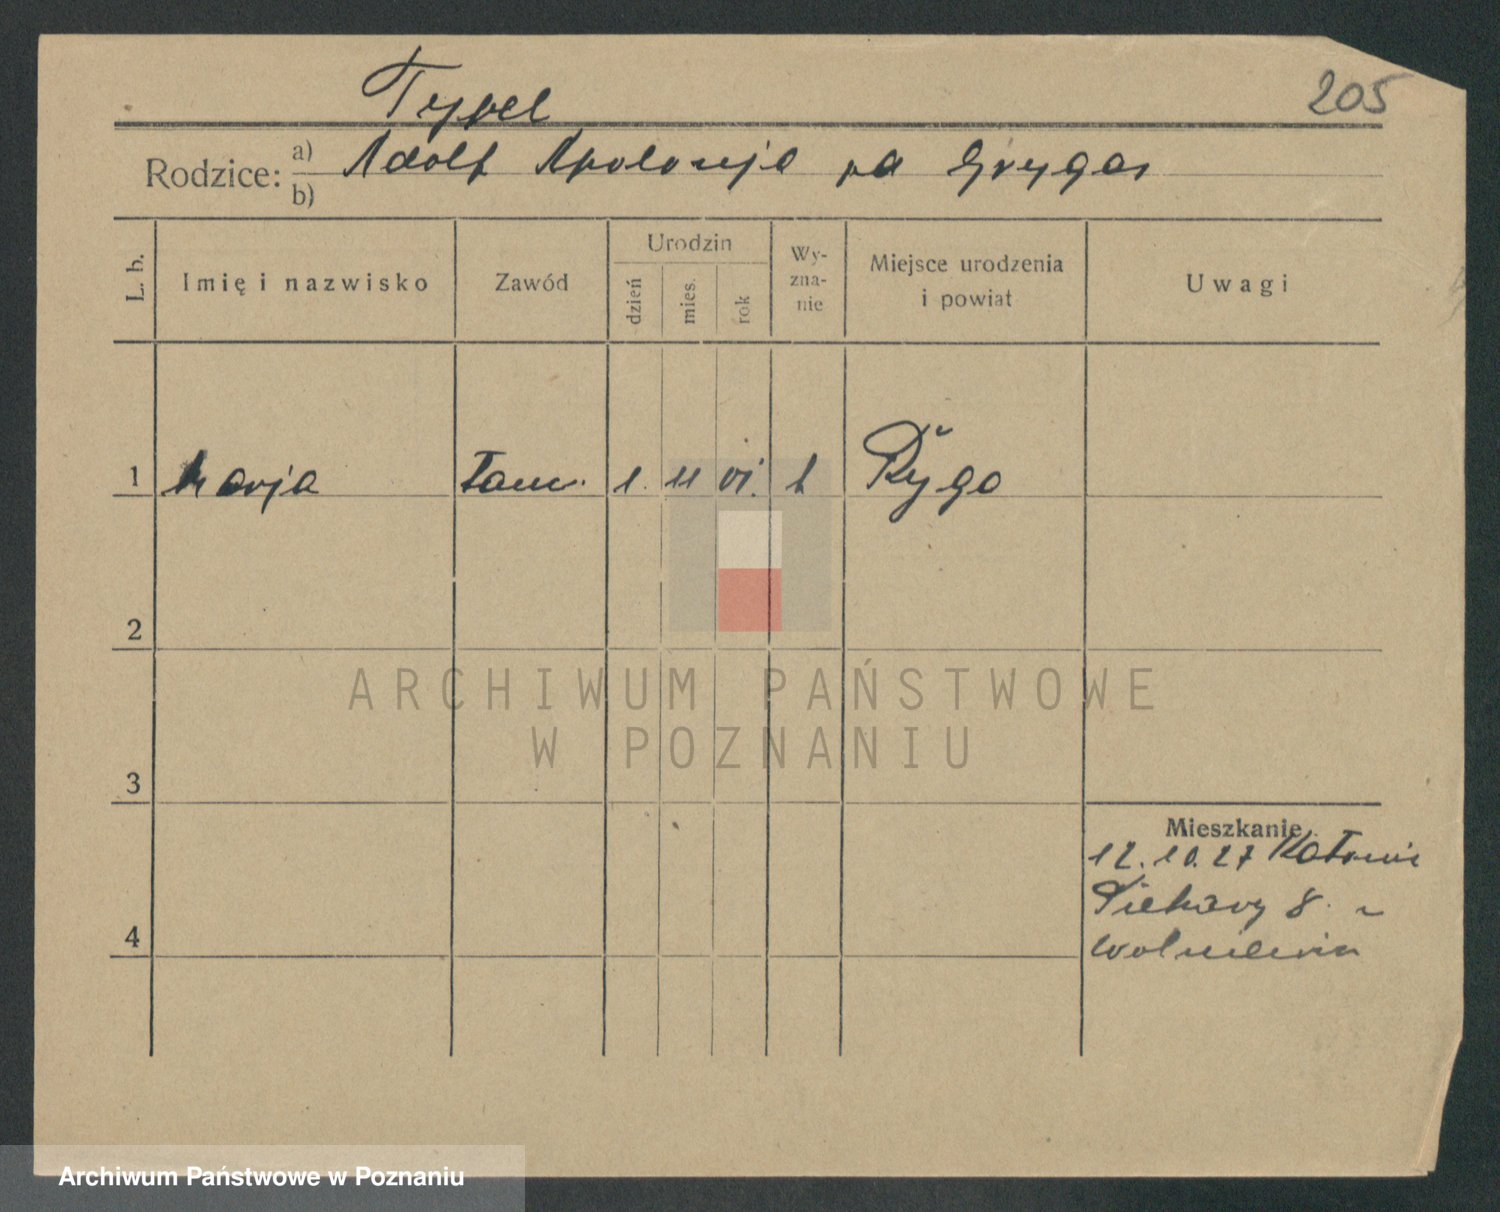 205
Typel
Rodzice: a) b) Adolf Apolonja na Grygas
L. b.
Imię i nazwisko
Zawód
Urodzin
dzień
mies.
rok
Wy-
zna-
nie
Miejsce urodzenia
i powiat
Uwagi
1 Marja 1. 11 Ryga
2
3
4
Mieszkanie
12.10.27
Piekary 8
ARCHIWUM PAŃSTWOWE
W POZNANIU
Archiwum Państwowe w Poznaniu